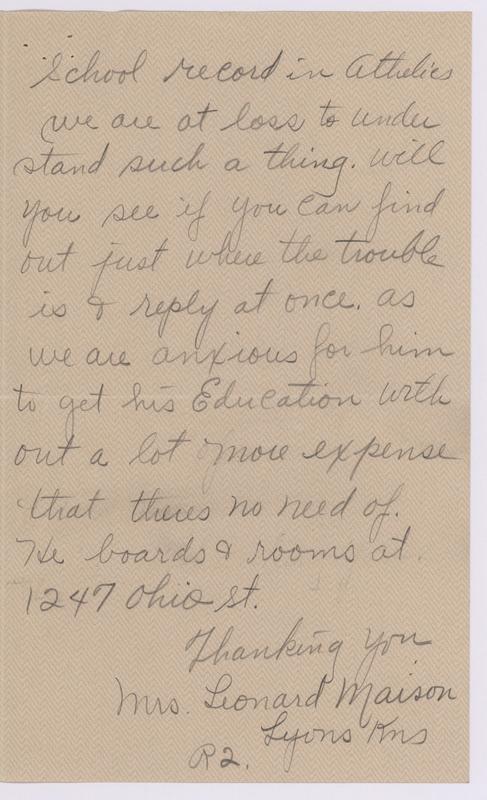 School record in Athelics
we are at loss to under
stand such a thing. will
you see if you can find
out just where the trouble
is & reply at once. as
we are anxious for him
to get his Education with
out a lot more expense
that theres no need of.
He boards & rooms at
1247 Ohio st.
Thanking you
Mrs. Leonard Maison
Lyons Kns
R2.